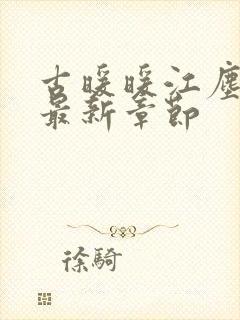 古暖暖江塵
最新章節
徐騎